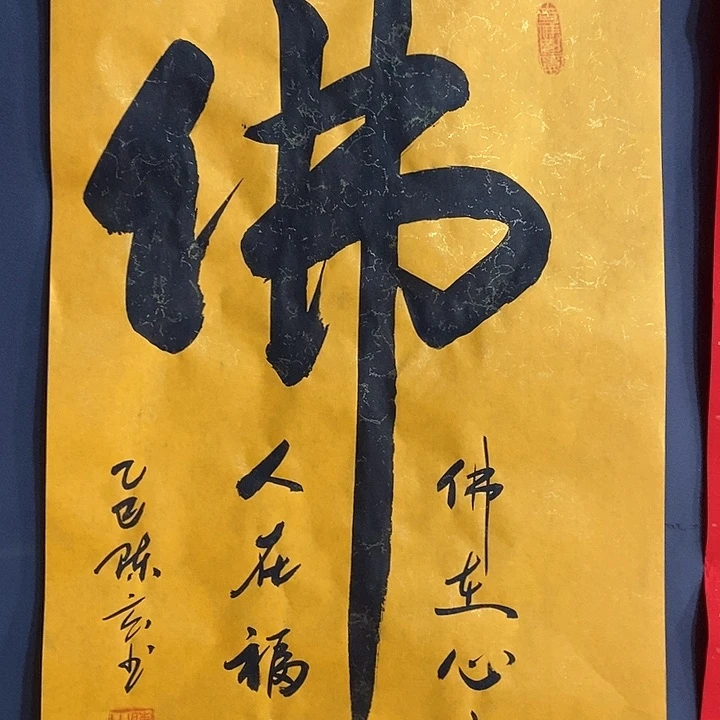 佛
佛在心
人在福
乙巳陈玄书